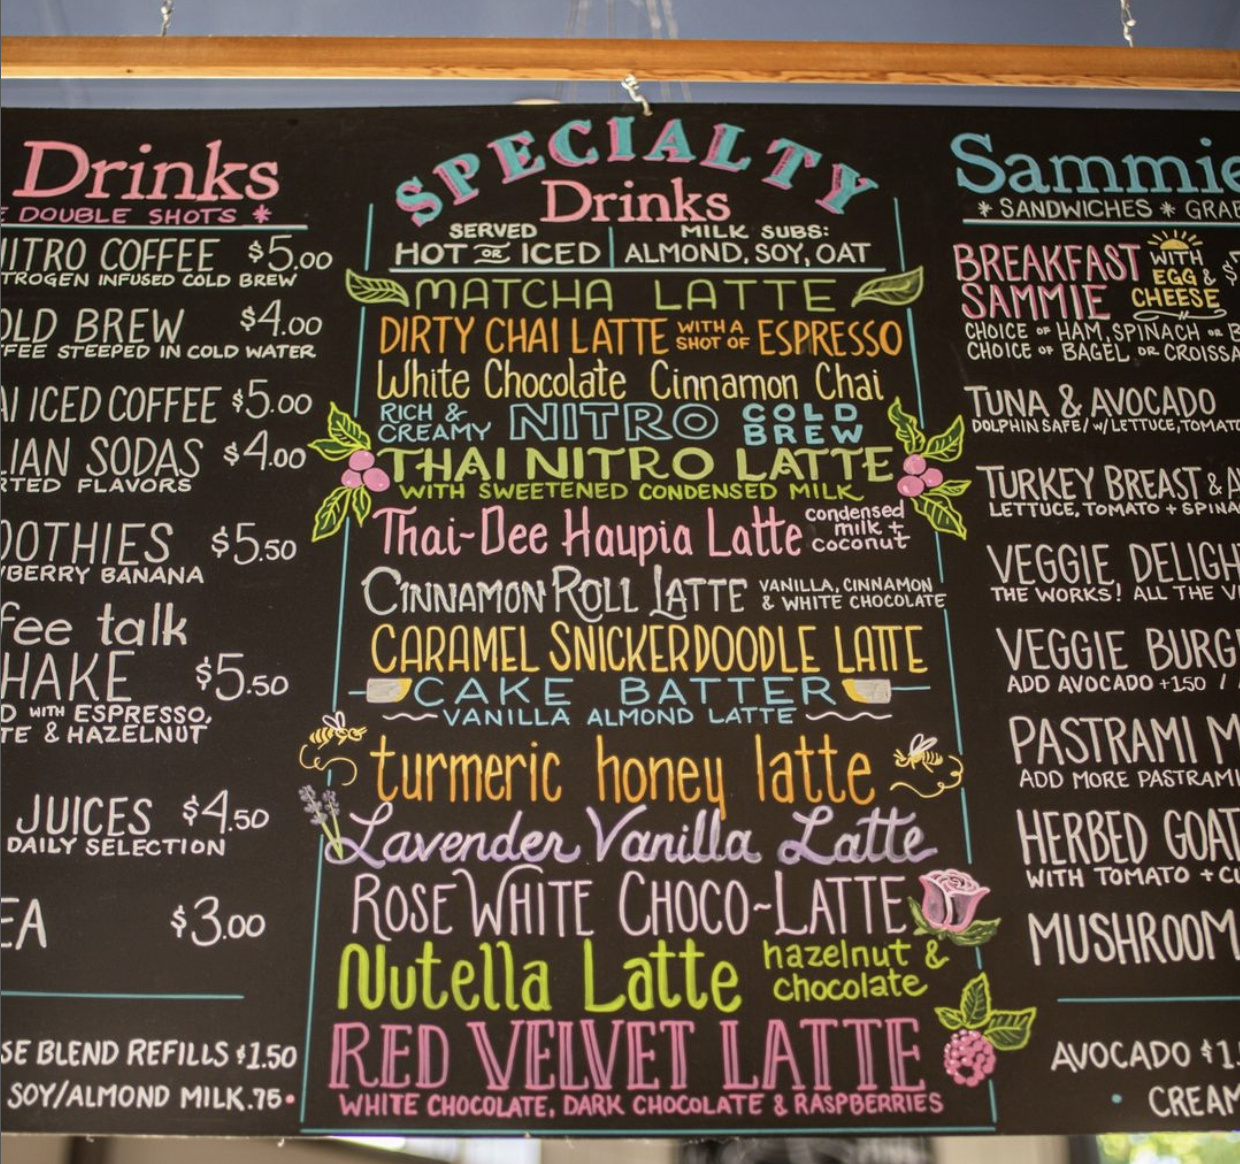 Drinks
DOUBLE SHOTS *
NITRO COFFEE $5.00
NITROGEN INFUSED COLD BREW
COLD BREW $4.00
COFFEE STEEPED IN COLD WATER
ICED COFFEE $5.00
SODAS $4.00
FLAVORS
$5.50
BANANA
talk
$5.50
WITH ESPRESSO,
& HAZELNUT
JUICES $4.50
DAILY SELECTION
$3.00
BLEND REFILLS $1.50
SOY/ALMOND MILK .75 •
SPECIALTY
Drinks
SERVED
HOT OR ICED
MILK SUBS:
ALMOND, SOY, OAT
MATCHA LATTE
DIRTY CHAI LATTE WITH A SHOT OF ESPRESSO
White Chocolate Cinnamon Chai
RICH & CREAMY NITRO COLD BREW
THAI NITRO LATTE
WITH SWEETENED CONDENSED MILK
Thai-Dee Haupia Latte condensed milk + coconut
CINNAMON ROLL LATTE VANILLA, CINNAMON & WHITE CHOCOLATE
CARAMEL SNICKERDOODLE LATTE
CAKE BATTER
VANILLA ALMOND LATTE
turmeric honey latte
Lavender Vanilla Latte
ROSE WHITE CHOCO~LATTE
Nutella Latte hazelnut & chocolate
RED VELVET LATTE
WHITE CHOCOLATE, DARK CHOCOLATE & RASPBERRIES
Sammie
* SANDWICHES *
BREAKFAST SAMMIE WITH EGG & CHEESE
CHOICE OF HAM, SPINACH OR
CHOICE OF BAGEL OR
TUNA & AVOCADO
DOLPHIN SAFE / W/ LETTUCE, TOMATO
TURKEY BREAST &
LETTUCE, TOMATO +
VEGGIE
THE WORKS! ALL THE
VEGGIE
ADD AVOCADO +1.50 /
PASTRAMI
ADD MORE PASTRAMI
HERBED GOAT
WITH TOMATO +
MUSHROOM
AVOCADO
• CREAM